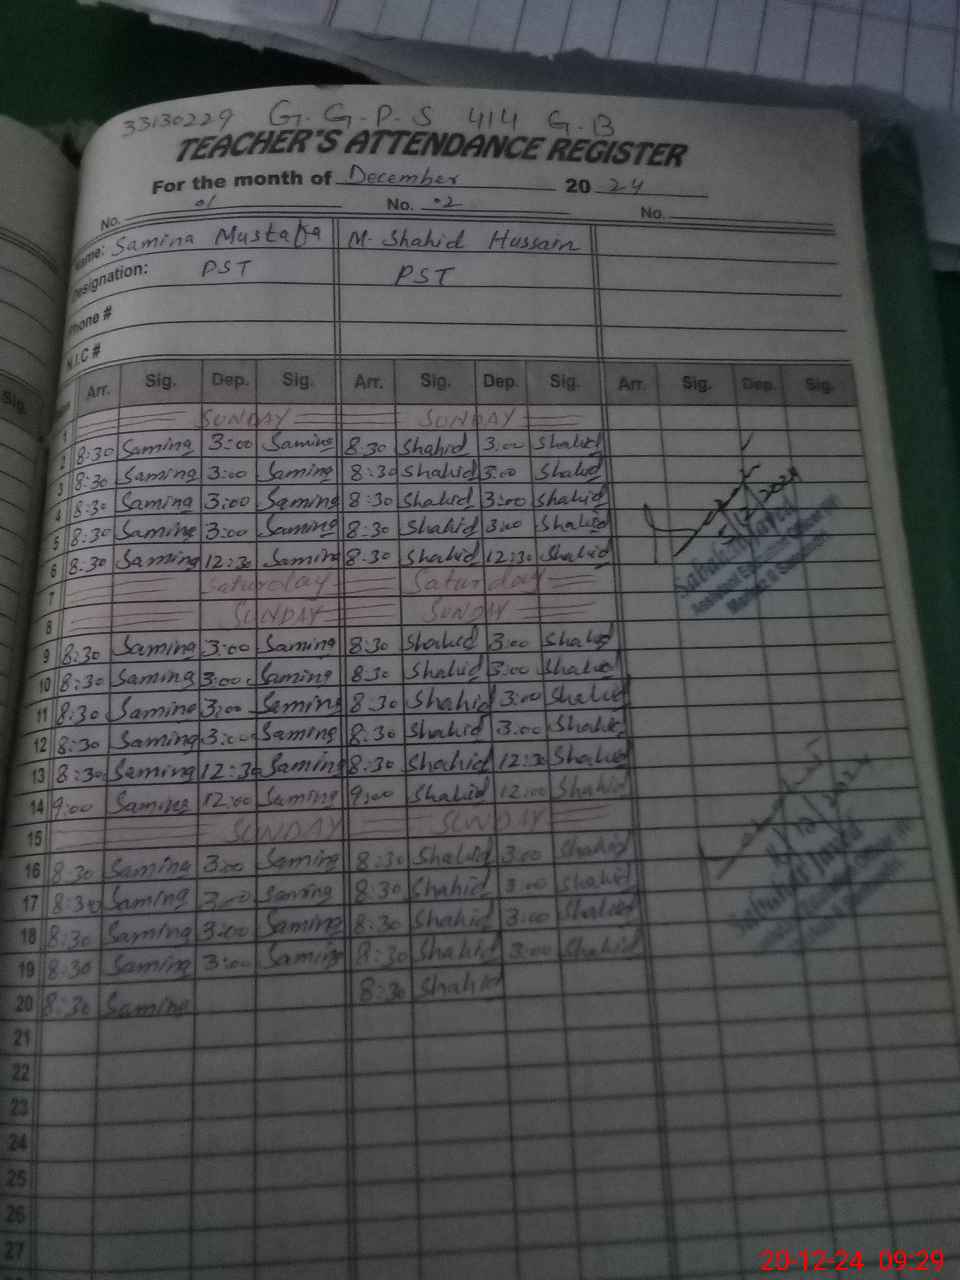 33130229 G.G.P.S 414 G.B
TEACHER'S ATTENDANCE REGISTER
For the month of December 2024
No. 01 No. 02 No.
Name: Samina Mustafa M. Shahid Hussain
Designation: PST PST
Phone #
N.I.C #
Sig. Arr. Sig. Dep. Sig. Arr. Sig. Dep. Sig. Arr. Sig. Dep. Sig.
1 SUNDAY SUNDAY
2 8:30 Samina 3:00 Samina 8:30 Shahid 3:00 Shahid
3 8:30 Samina 3:00 Samina 8:30 Shahid 3:00 Shahid
4 8:30 Samina 3:00 Samina 8:30 Shahid 3:00 Shahid
5 8:30 Samina 3:00 Samina 8:30 Shahid 3:00 Shahid
6 8:30 Samina 12:30 Samina 8:30 Shahid 12:30 Shahid
7 Saturday Saturday
8 SUNDAY SUNDAY
9 8:30 Samina 3:00 Samina 8:30 Shahid 3:00 Shahid
10 8:30 Samina 3:00 Samina 8:30 Shahid 3:00 Shahid
11 8:30 Samina 3:00 Samina 8:30 Shahid 3:00 Shahid
12 8:30 Samina 3:00 Samina 8:30 Shahid 3:00 Shahid
13 8:30 Samina 12:30 Samina 8:30 Shahid 12:30 Shahid
14 9:00 Samina 12:00 Samina 9:00 Shahid 12:00 Shahid
15 SUNDAY SUNDAY
16 8:30 Samina 3:00 Samina 8:30 Shahid 3:00 Shahid
17 8:30 Samina 3:00 Samina 8:30 Shahid 3:00 Shahid
18 8:30 Samina 3:00 Samina 8:30 Shahid 3:00 Shahid
19 8:30 Samina 3:00 Samina 8:30 Shahid 3:00 Shahid
20 8:30 Samina 8:30 Shahid
21
22
23
24
25
26
27
5/12/2024
Javed
Assistant Education Officer
/12/2024
Javed
Officer
20-12-24 09:29